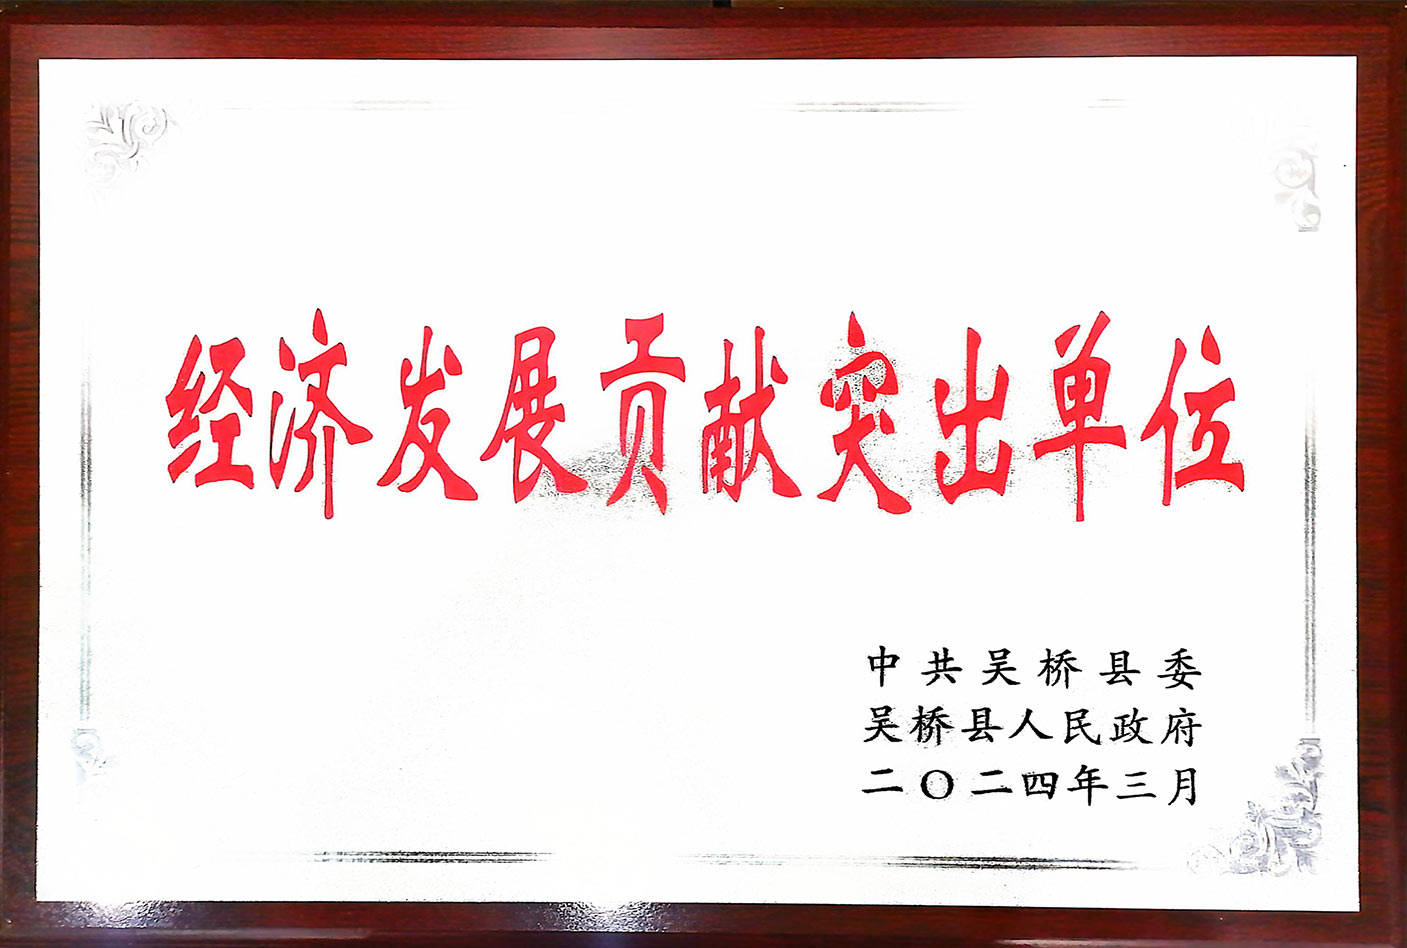 经济发展贡献突出单位
中共吴桥县委
吴桥县人民政府
二〇二四年三月